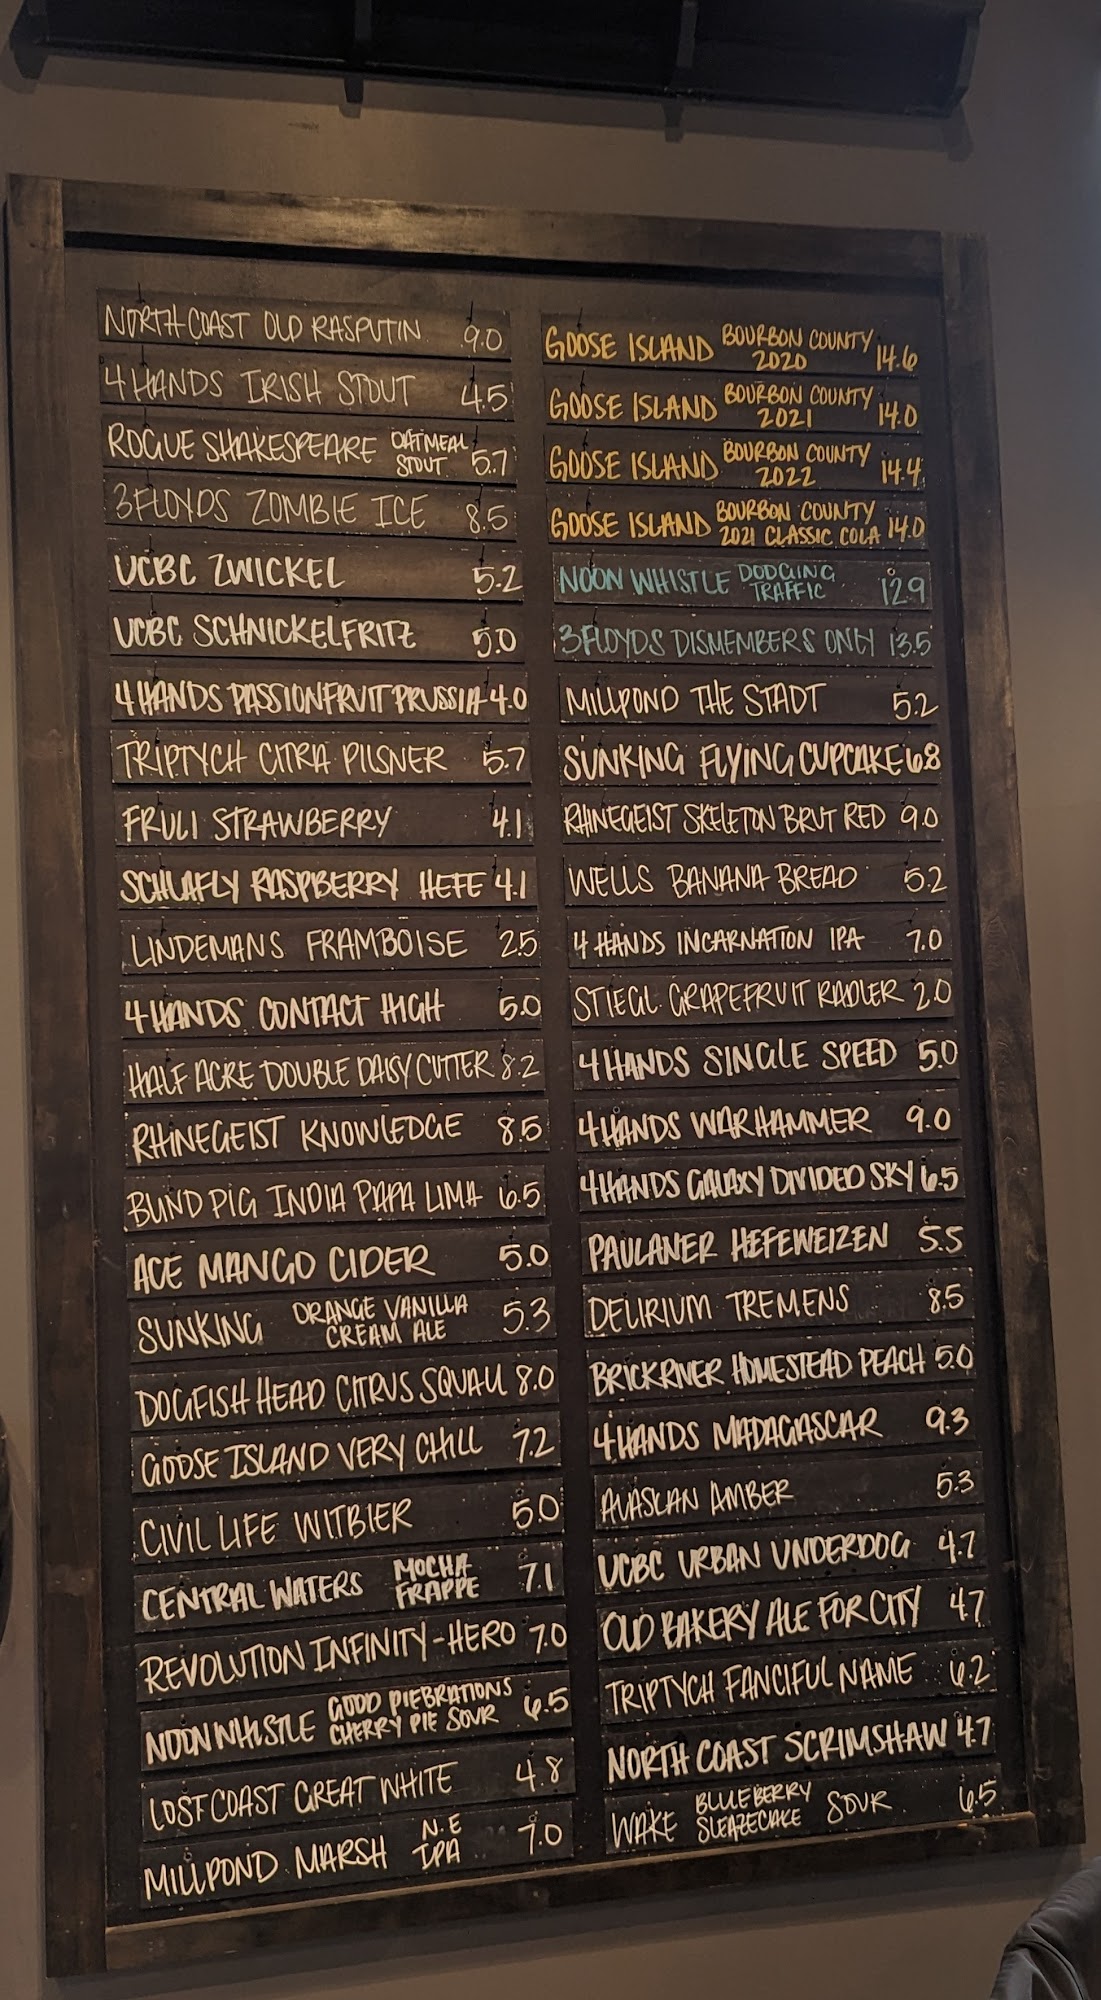 NORTH COAST OLD RASPUTIN 9.0
4 HANDS IRISH STOUT 4.5
ROGUE SHAKESPEARE OATMEAL STOUT 5.7
3 FLOYDS ZOMBIE ICE 8.5
UCBC ZWICKEL 5.2
UCBC SCHNICKELFRITZ 5.0
4 HANDS PASSIONFRUIT PRUSSIA 4.0
TRIPTYCH CITRA PILSNER 5.7
FRULI STRAWBERRY 4.1
SCHLAFLY RASPBERRY HEFE 4.1
LINDEMANS FRAMBOISE 2.5
4 HANDS CONTACT HIGH 5.0
HALF ACRE DOUBLE DAISY CUTTER 8.2
RHINEGEIST KNOWLEDGE 8.5
BLIND PIG INDIA PAPA LIMA 6.5
ACE MANGO CIDER 5.0
SUNKING ORANGE VANILLA CREAM ALE 5.3
DOGFISH HEAD CITRUS SQUALL 8.0
GOOSE ISLAND VERY CHILL 7.2
CIVIL LIFE WITBIER 5.0
CENTRAL WATERS MOCHA FRAPPE 7.1
REVOLUTION INFINITY-HERO 7.0
NOON WHISTLE GOOD PIEBRATIONS CHERRY PIE SOUR 6.5
LOST COAST GREAT WHITE 4.8
MILLPOND MARSH N.E IPA 7.0
GOOSE ISLAND BOURBON COUNTY 2020 14.6
GOOSE ISLAND BOURBON COUNTY 2021 14.0
GOOSE ISLAND BOURBON COUNTY 2022 14.4
GOOSE ISLAND BOURBON COUNTY 2021 CLASSIC COLA 14.0
NOON WHISTLE DODGING TRAFFIC 12.9
3 FLOYDS DISMEMBERS ONLY 13.5
MILLPOND THE STADT 5.2
SUNKING FLYING CUPCAKE 6.8
RHINEGEIST SKELETON BRUT RED 9.0
WELLS BANANA BREAD 5.2
4 HANDS INCARNATION IPA 7.0
STIEGL GRAPEFRUIT RADLER 2.0
4 HANDS SINGLE SPEED 5.0
4 HANDS WARHAMMER 9.0
4 HANDS GALAXY DIVIDED SKY 6.5
PAULANER HEFEWEIZEN 5.5
DELIRIUM TREMENS 8.5
BRICKRIVER HOMESTEAD PEACH 5.0
4 HANDS MADAGASCAR 9.3
ALASKAN AMBER 5.3
UCBC URBAN UNDERDOG 4.7
OLD BAKERY ALE FOR CITY 4.7
TRIPTYCH FANCIFUL NAME 6.2
NORTH COAST SCRIMSHAW 4.7
WAKE BLUEBERRY SLEAZECAKE SOUR 6.5